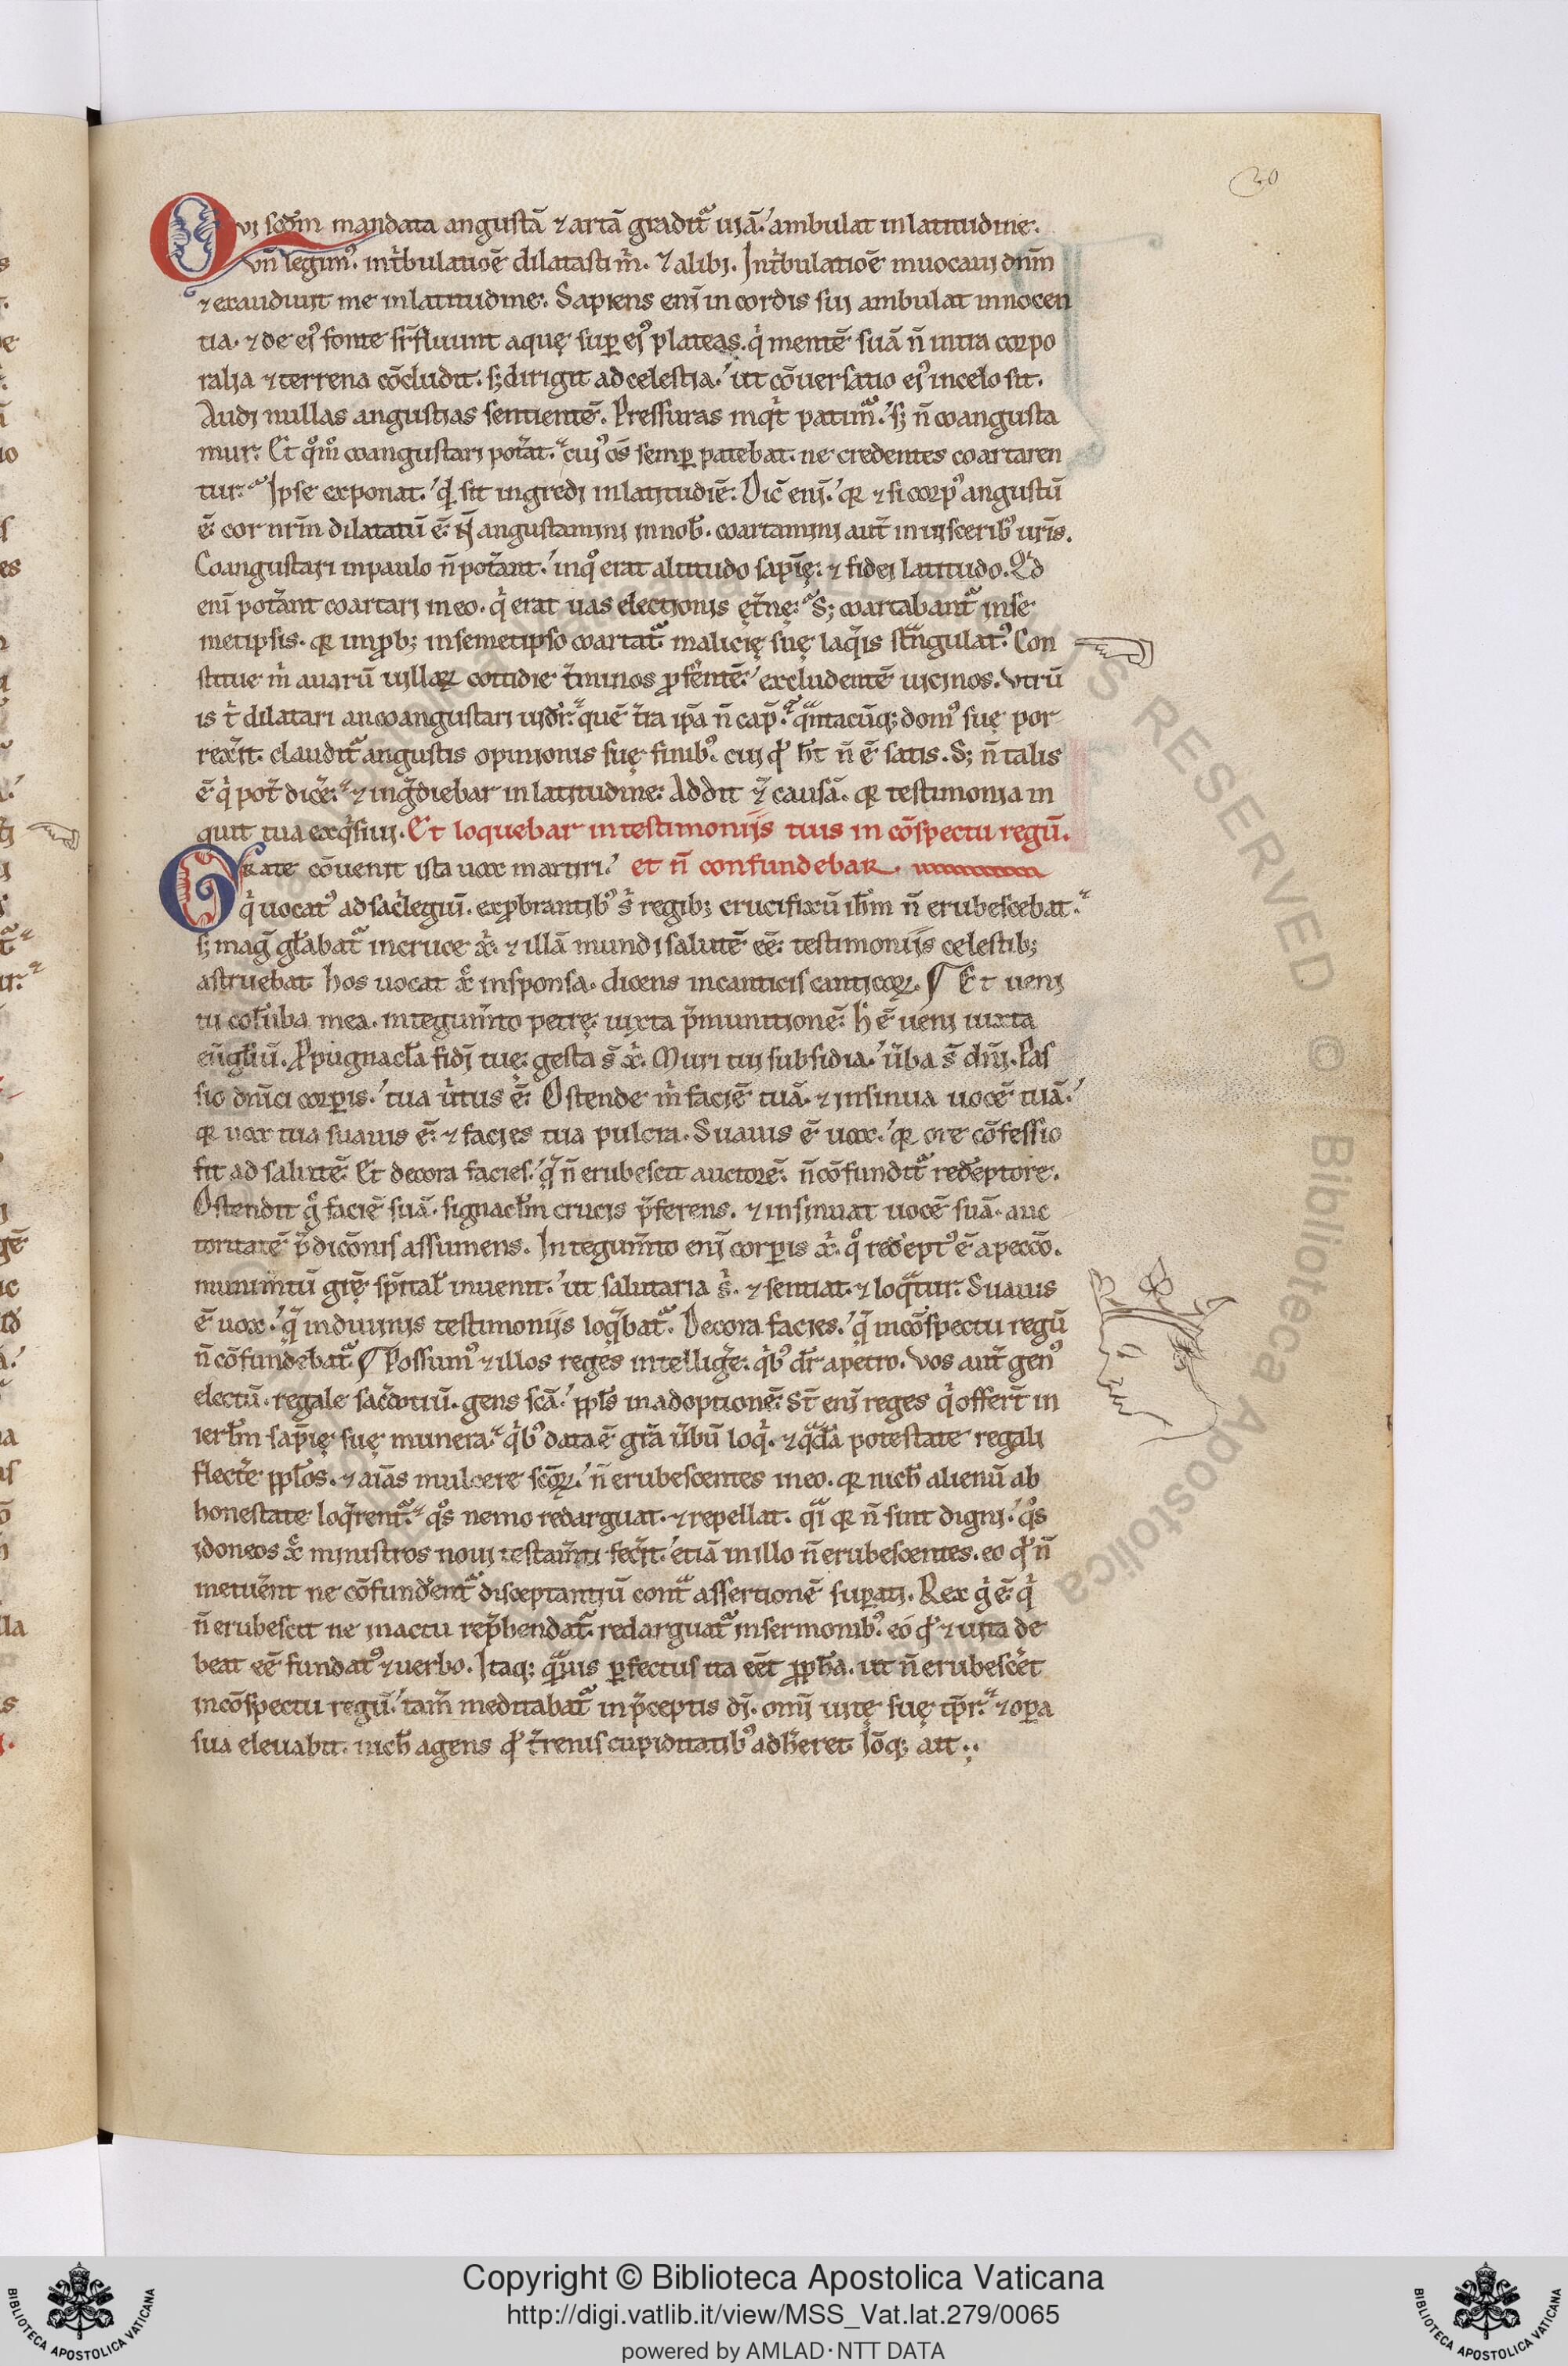 30
Qui scd̄m mandata angustā ⁊ artā gradit᷑ uiā. ambulat in latitudine.
Vn̄ legimꝰ. in t̓bulatioē dilatasti m̓. ⁊ alibi. In t̓bulatioē inuocaui dn̄m
⁊ exaudiuit me in latitudine. Sapiens eni᷑ in cordis sui ambulat innocen
tia. ⁊ de eiꝰ fonte sr̄fluunt aquę suꝑ eiꝰ plateas. q̓ mentē suā n̄ intra corpo
ralia ⁊ terrena cōcludit. s; dirigit ad celestia. ut cōuersatio eiꝰ in celo sit.
Audi nullas angustias sentientē. Pressuras inqt̓ patim᷑. s; n̄ coangusta
mur. Et qͦm̊ coangustari pot̄at. cuiꝰ os̄ semꝑ patebat. ne credentes coartaren
tur. Ipse exponat. qd̓ sit ingredi in latitudiē. Dic̄ eni᷑. qꝛ ⁊ si corpꝰ angustū
ē. cor nr̄m dilatatū ē. N̄ angustamini in nob̄. coartamini aut̄ in uisceribꝰ ur̄is.
Coangustari in paulo n̄ pot̄ant. in qͦ erat altitudo sapi̅ę. ⁊ fidei latitudo. Qd̓
eni᷑ pot̄ant coartari in eo. q̓ erat uas electionis ęt̄nę. S; coartabant᷑ in se
metipsis. qꝛ inꝓb; in semetipso coartat᷑ malicię suę laq̄is st̄ngulatꝰ. Con
stitue m̓ auarū uillaꝝ cottidie t̄minos ꝓfe̓ntē. excludentē uicinos. Vtrū
is t̓ dilatari an coangustari uidr̄. quē t̄ra ip̄a n̄ cap̄. q̄ntacūq; domꝰ suę por
rex̄it. claudit᷑ angustis opinionis suę finibꝰ. cui qd̓ ht̄ n̄ ē satis. S; n̄ talis
ē q̓ pot̄ dic̄e. ⁊ inḡdiebar in latitudine. Addit ⁊ causā. qꝛ testimonia in
quit tua exq̓siui. Et loquebar in testimoniis tuis in cōspectu regū.
Grate cōuenit ista uox martiri. et n̄ confundebar.
q̓ uocatꝰ ad sac̓legiū. exꝓbrantibꝰ s̓ regib; crucifixū ih̄m n̄ erubescebat.
s; mag̓ gl̄abat᷑ in cruce xp̓. ⁊ illā mundi salutē eē. testimoniis celestib;
astruebat. hos uocat xp̄ in sponsa. dicens in canticis canticoꝝ. ¶ Et ueni
tu colūba mea. in tegum̄to petrę. iuxta p̄munitionē. h̓ ē ueni iuxta
eu̅gl̄iū. Ꝓpugnacl̄a fidi᷑ tuę. gesta s̄ xp̓. Muri tui subsidia. u̓ba s̄ dn̄i. Pas
sio dn̄ici corꝑis. tua u̓tus ē. Ostende m̓ faciē tuā. ⁊ insinua uocē tuā.
qꝛ uox tua suauis ē. ⁊ facies tua pulcra. Suauis ē uox. qꝛ ore cōfessio
fit ad salutē. Et decora facies. q̄ n̄ erubescit auctorē. n̄ cōfundit᷑ redēptore.
Ostendit gͦ faciē suā. signacl̄m crucis p̄ferens. ⁊ insinuat uocē suā. auc
toritatē p̄dicōnis assumens. In tegum̄to eni᷑ corꝑis xp̓. qͦ redēptꝰ ē a peccō.
munim̄tū grę̄ sp̄ital̓ inuenit. ut salutaria s̓. ⁊ sentiat. ⁊ loq̄tur. Suauis
ē uox. q̄ in diuinis testimoniis loq̄bat᷑. Decora facies. q̄ in cōspectu regū
n̄ cōfundebat᷑. ¶ Possumꝰ ⁊ illos reges intellig̓e. q̓bꝰ dr̄ a petro. Vos aut̄ genꝰ
electū. regale sac̓dotiū. gens scā. ppl̄s in adoptionē. St̄ eni᷑ reges q̓ offert̄ in
ierl̄m sapi̅ę suę munera. q̓bꝰ data ē gr̄a u̓bū loq̓. ⁊ q̄dā potestate regali
flect̓e ppl̄os. ⁊ ai̅as mulcere sc̄oꝝ. n̄ erubescentes in eo. qꝛ nich̓ alienū ab
honestate loq̄rent᷑. qͦs nemo redarguat. ⁊ repellat. q̄i qꝛ n̄ sint digni. qͦs
idoneos xp̄ ministros noui testam̄ti fec̓it. etiā in illo n̄ erubescentes. eo qd̓ n̄
metue̓nt ne cōfunde̓nt᷑ disceptantiū cont̄ assertionē suꝑati. Rex g̓ ē. q̓
n̄ erubescit ne in actu rep̄hendat᷑. redarguat᷑ in sermonibꝰ. eo qd̓ ⁊ uita de
beat eē fundatꝰ ⁊ uerbo. Itaq; q̄uis ꝑfectus ita eēt ꝓph̄a. ut n̄ erubesc̓et
in cōspectu regū. tam̄ meditabat᷑ in p̄ceptis di᷑. om̄i uitę suę tp̄r. ⁊ oꝑa
sua eleuabit. nich̓ agens qd̓ t̄renis cupiditatibꝰ adh̓eret. Iōq; ait.
ALL RIGHTS RESERVED © Biblioteca Apostolica
Copyright © Biblioteca Apostolica Vaticana
http://digi.vatlib.it/view/MSS_Vat.lat.279/0065
powered by AMLAD·NTT DATA
BIBLIOTECA APOSTOLICA VATICANA
BIBLIOTECA APOSTOLICA VATICANA